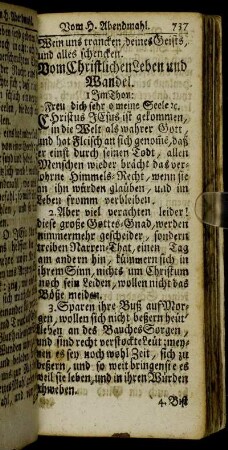 Vom H. Abendmahl. 737
Wein uns trancken, deines Geists,
und alles schencken.
Vom Christlichen Leben und
Wandel.
1 Im Thon:
Freu dich sehr o meine Seele ꝛc.
Christus JEsus ist gekommen,
in die Welt als wahrer Gott
und hat Fleisch an sich genom̃e, daß
er einst durch seinen Todt, allen
Menschen wieder brächt das ver-
lohrne Himmels-Recht, wenn sie
an ihn würden glauben, und im
Leben fromm verbleiben.
2. Aber viel verachten leider!
diese große Gottes-Gnad, werden
nimmermehr gescheider, sondern
treiben Narren-That, einen Tag
am andern hin, kümmern sich in
ihrem Sinn, nichts um Christum
noch sein Leiden, wollen nicht das
Böße meiden.
3. Sparen ihre Buß auf Mor-
gen, wollen sich nicht beßern heut
kleben an des Bauches Sorgen,
und sind recht verstockte Leut: mey-
nen es sey noch wohl Zeit, sich zu
beßern, und so weit bringens sie es
weil sie leben, und in ihren Würden
schweben.
4. Bist